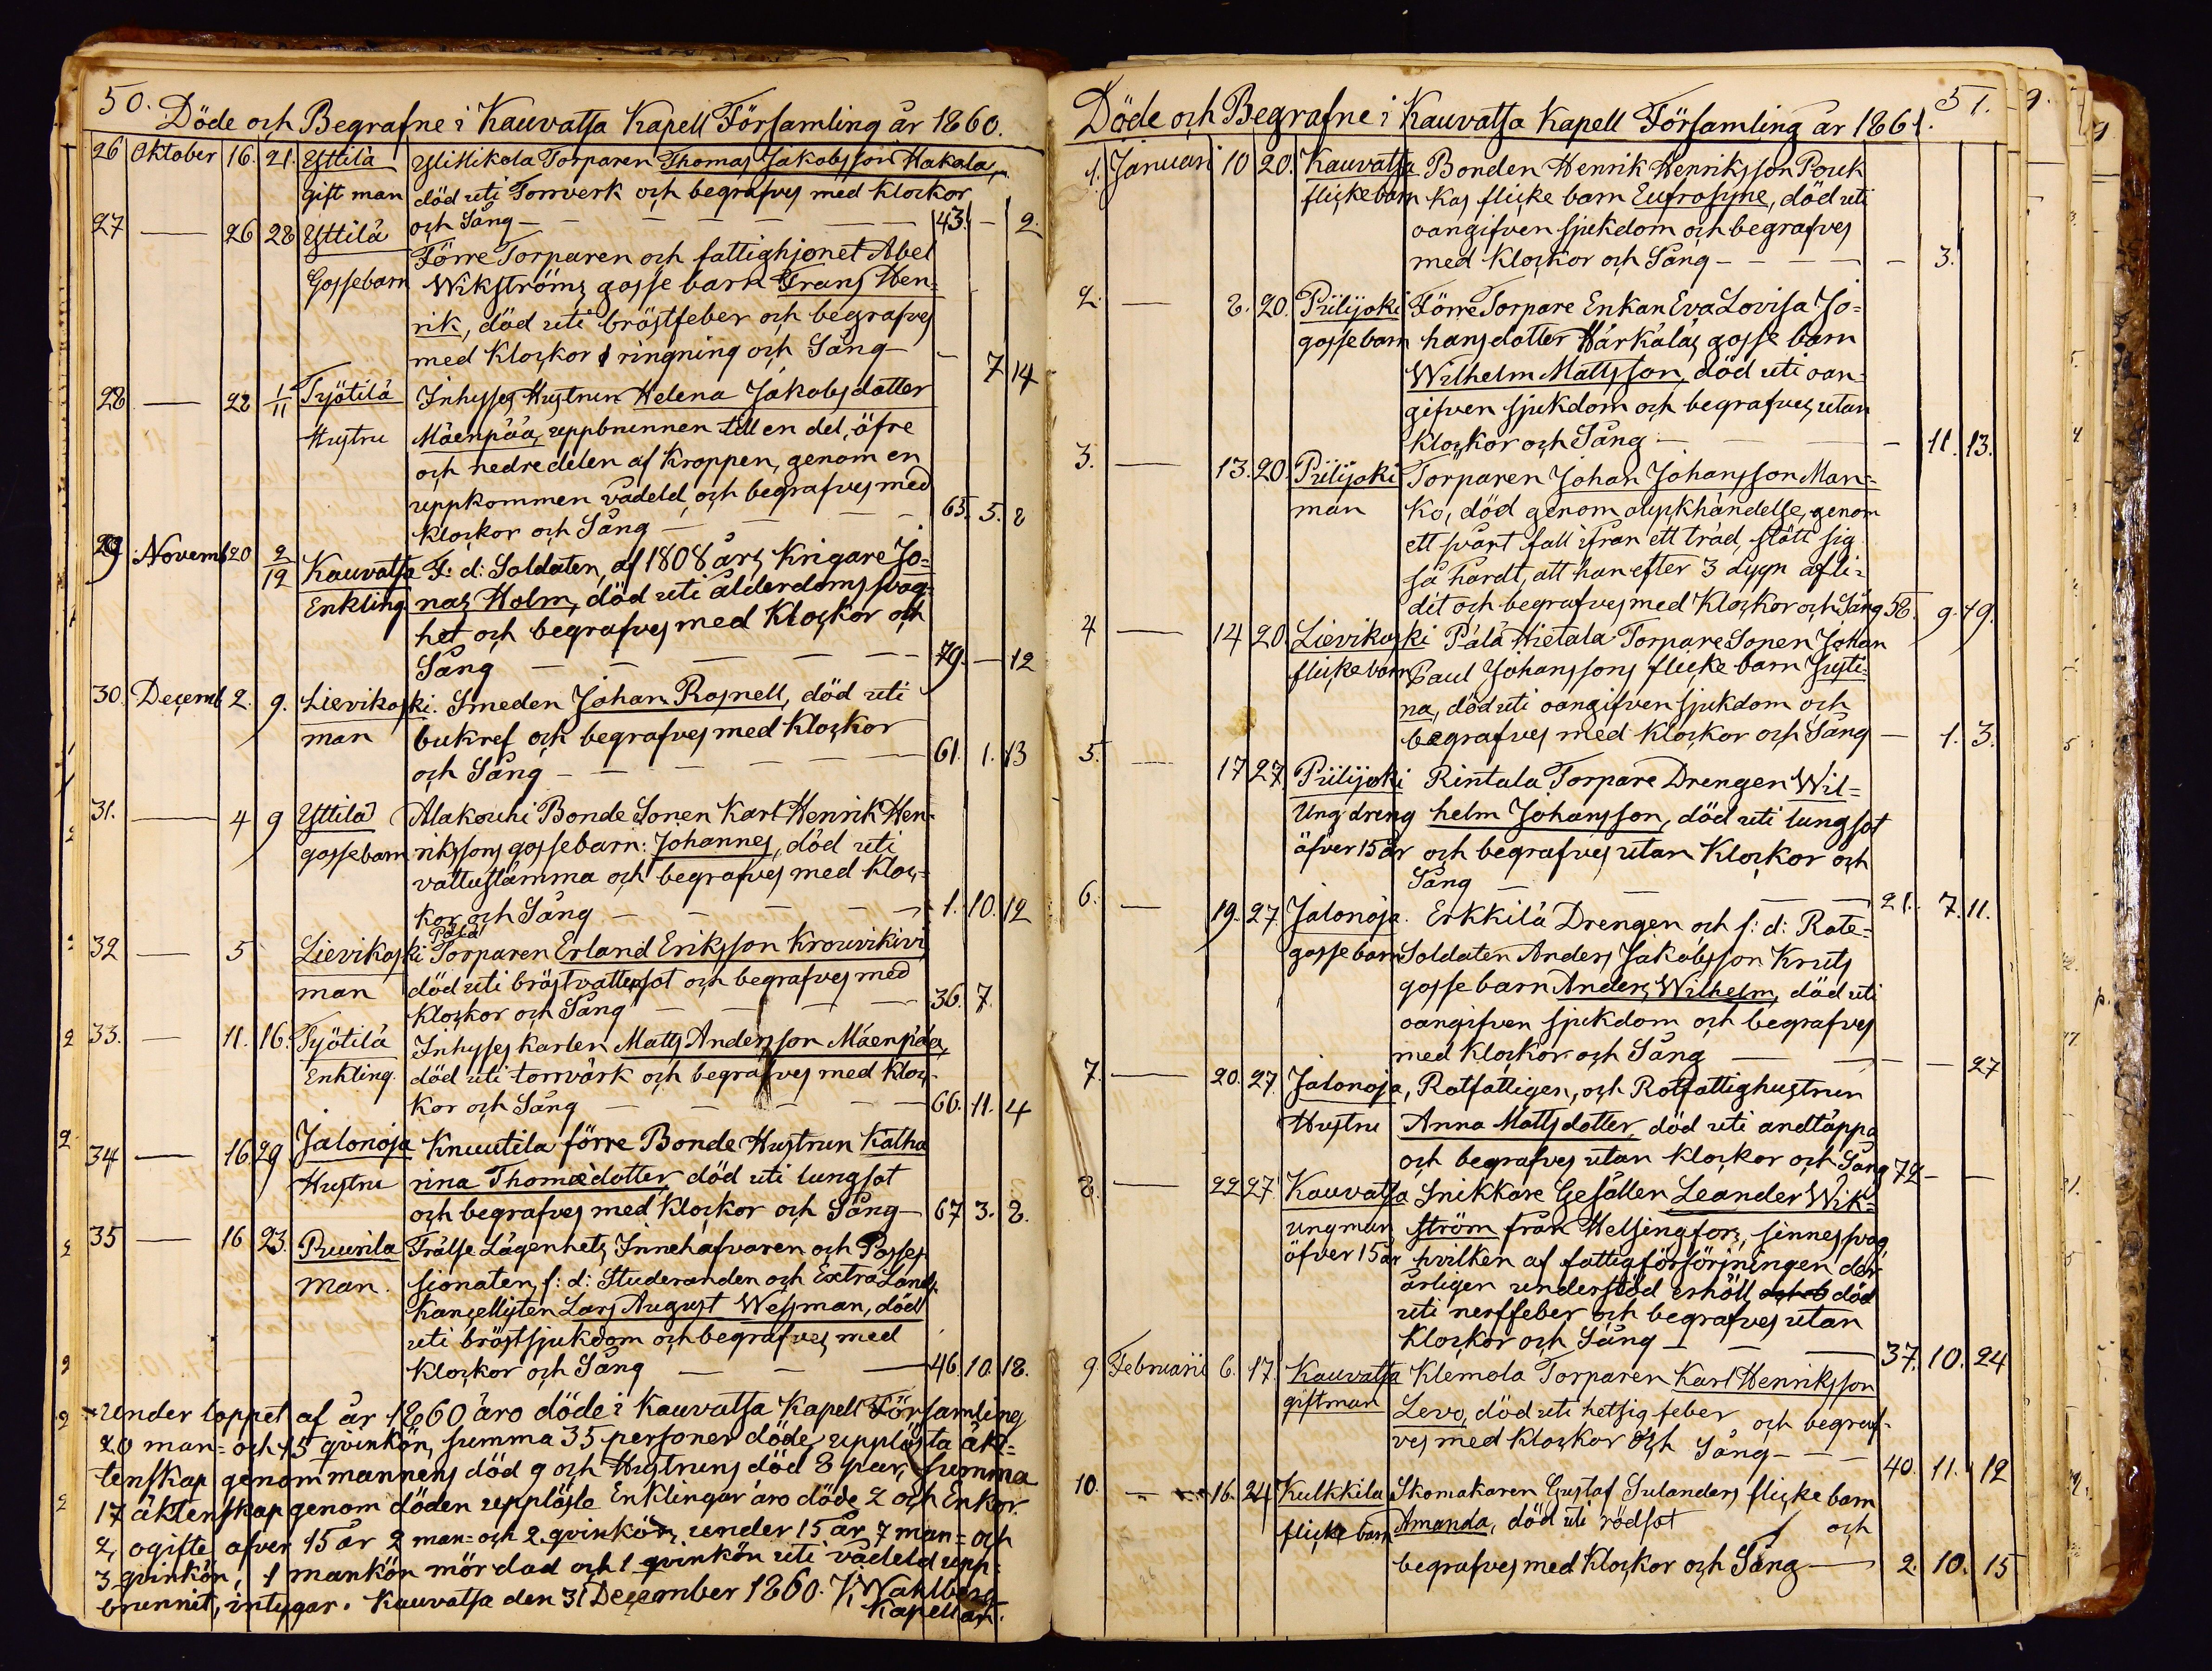 50.
Döde och Begrafne i Kauvatsa Kapell Församling år 1860.
26 Oktober 16. 21. Yttilä YliMikola Torparen Thomas Jakobsson Hakala,
gift man död uti Torrverk och begrafves med klockor
och Sång — — — — 43. — 2.
27 — 26 28 Yttilä Förre Torparen och fattighjonet Abel
Gossebarn Wikströms gosse barn Frans Hen=
rik, död uti bröstfeber och begrafves
med Klockor ringning och Sång — — 7 14
28 — 22 1/11 Työtilä Inhyses Hustrun Helena Jakobsdotter
Hustru Mäenpää, uppbrunnen till en del, öfre
och nedre delen af Kroppen, genom en
uppkommen vådeld, och begrafves med
klockor och Sång — — — 65. 5. 2
29 Novemb 20 2/12 Kauvatsa F: d: Soldaten, af 1808 års Krigare Jo=
Enkling nas Holm, död uti ålderdoms svag=
het och begrafves med Klockor och
Sång — — — — — 79. — 12
30. Decemb 2. 9. Lievikoski. Smeden Johan Rosnell, död uti
man bukref och begrafves med Klockor
och Sång — — — — — 61. 1. 13
31. — 4 9 Yttilä Alakouhi Bonde Sonen Karl Henrik Hen=
gossebarn rikssons gossebarn: Johannes, död uti
vattustämma och begrafves med Kloc=
kor och Sång — — — — 1. 10. 12
Pälä
32 — 5 Lievikoski Torparen Erland Eriksson Krouvikivi
man död uti bröstvattusot och begrafves med
Klockor och Sång — — — 36. 7.
33. — 11. 16. Työtilä Inhyses karlen Matts Andersson Mäenpää,
Enkling. död uti torrvärk och begrafves med Kloc=
kor och Sång — — — — 66. 11. 4
34 — 16 29 Jalonoja Knuutila förre Bonde Hustrun Katha
Hustru rina Thomædotter död uti lungsot
och begrafves med Klockor och Sång — 67 3. 2.
35 — 16 23. Ruurila Frälse Lägenhets Innehafvaren och Posses=
Man. sionaten, f: d: Studeranden och Extra Lands
Kancellisten Lars August Wessman, död
uti bröstsjukdom och begrafves med
Klockor och Sång — — — 46. 10. 18.
Under loppet af år 1860 äro döde i Kauvatsa Kapell Församling
20 man= och 15 qvinkön, summa 35 personer döde, upplösta äk=
tenskap genom mannens död 9 och Hustruns död 8 par, summa
17 äktenskap genom döden upplöste Enklingar äro döde 2 och Enkor
2, ogifte öfver 15 år 2 man= och 2 qvinkön, under 15 år, 7 man= och
3 qvinkön, 1 mankön mördad och 1 qvinkön uti vådeld upp=
brunnit, intygar. Kauvatsa den 31 December 1860. K Wahlberg
Kapellan.
51.
Döde och Begrafne i Kauvatsa Kapell Församling år 1861.
1. Januari 10 20. Kauvatsa Bonden Henrik Henriksson Pouk
flickebarn kas flicke barn Eufrosyne, död uti
oangifven sjukdom och begrafves
med Klockor och Sång — — — — — 3.
2. — 8. 20. Piilijoki Förre Torpare Enkan Eva Lovisa Jo=
gossebarn hansdotter Härkäläs gosse barn
Wilhelm Mattsson, död uti oan=
gifven sjukdom och begrafves, utan
klockor och Sång — — — — 11. 13.
3. — 13. 20. Piilijoki Torparen Johan Johansson Man=
man ko, död genom olyckhändelse, genom
ett svårt fall ifrån ett träd, stött sig
så hårdt, att han efter 3 dygn afli=
dit och begrafves med Klockor och Sång 58. 9. 19.
4 — 14 20. Lievikoski Pälä Hietala Torpare Sonen Johan
flickebarn Paul Johanssons flicke barn Justi=
na, död uti oangifven sjukdom och
begrafves med Klockor och Sång — 1. 3.
5. — 17 27. Piilijoki Rintala Torpare Drengen Wil=
Ung dreng helm Johansson, död uti lungsot
öfver 15 år och begrafves utan Klockor och
Sång — — — 21. 7. 11.
6. — 19. 27. Jalonoja. Erkkilä Drengen och f: d: Rote=
gossebarn Soldaten Anders Jakobsson Kruts
gosse barn Anders Wilhelm, död uti
oangifven sjukdom och begrafves
med Klockor och Sång — — — — 27
7. — 20. 27. Jalonoja, Rotfattigen, och Rotfattighustrun
Hustru Anna Mattsdotter död uti andtäppa
och begrafves utan klockor och Sång 72 — —
8. — 22 27. Kauvatsa Snikkare Gesällen Leander Wik=
ungman ström från Helsingfors, sinnessvag
öfver 15 år hvilken af fattigförsörjningen der
årligen understöd erhöll död
uti nerffeber och begrafves utan
Klockor och Sång — — — 37. 10. 24
9. Februarii 6. 17. Kauvatsa Klemola Torparen Karl Henriksson
giftman Levo, död uti hetsig feber och begraf=
ves med Klockor och Sång — — 40. 11. 12
10. — 16. 24 Kulkkila Skomakaren Gustaf Sulanders flicke barn
flicke barn Amanda, död uti rödsot och
begrafves med Klockor och Sång — 2. 10. 15